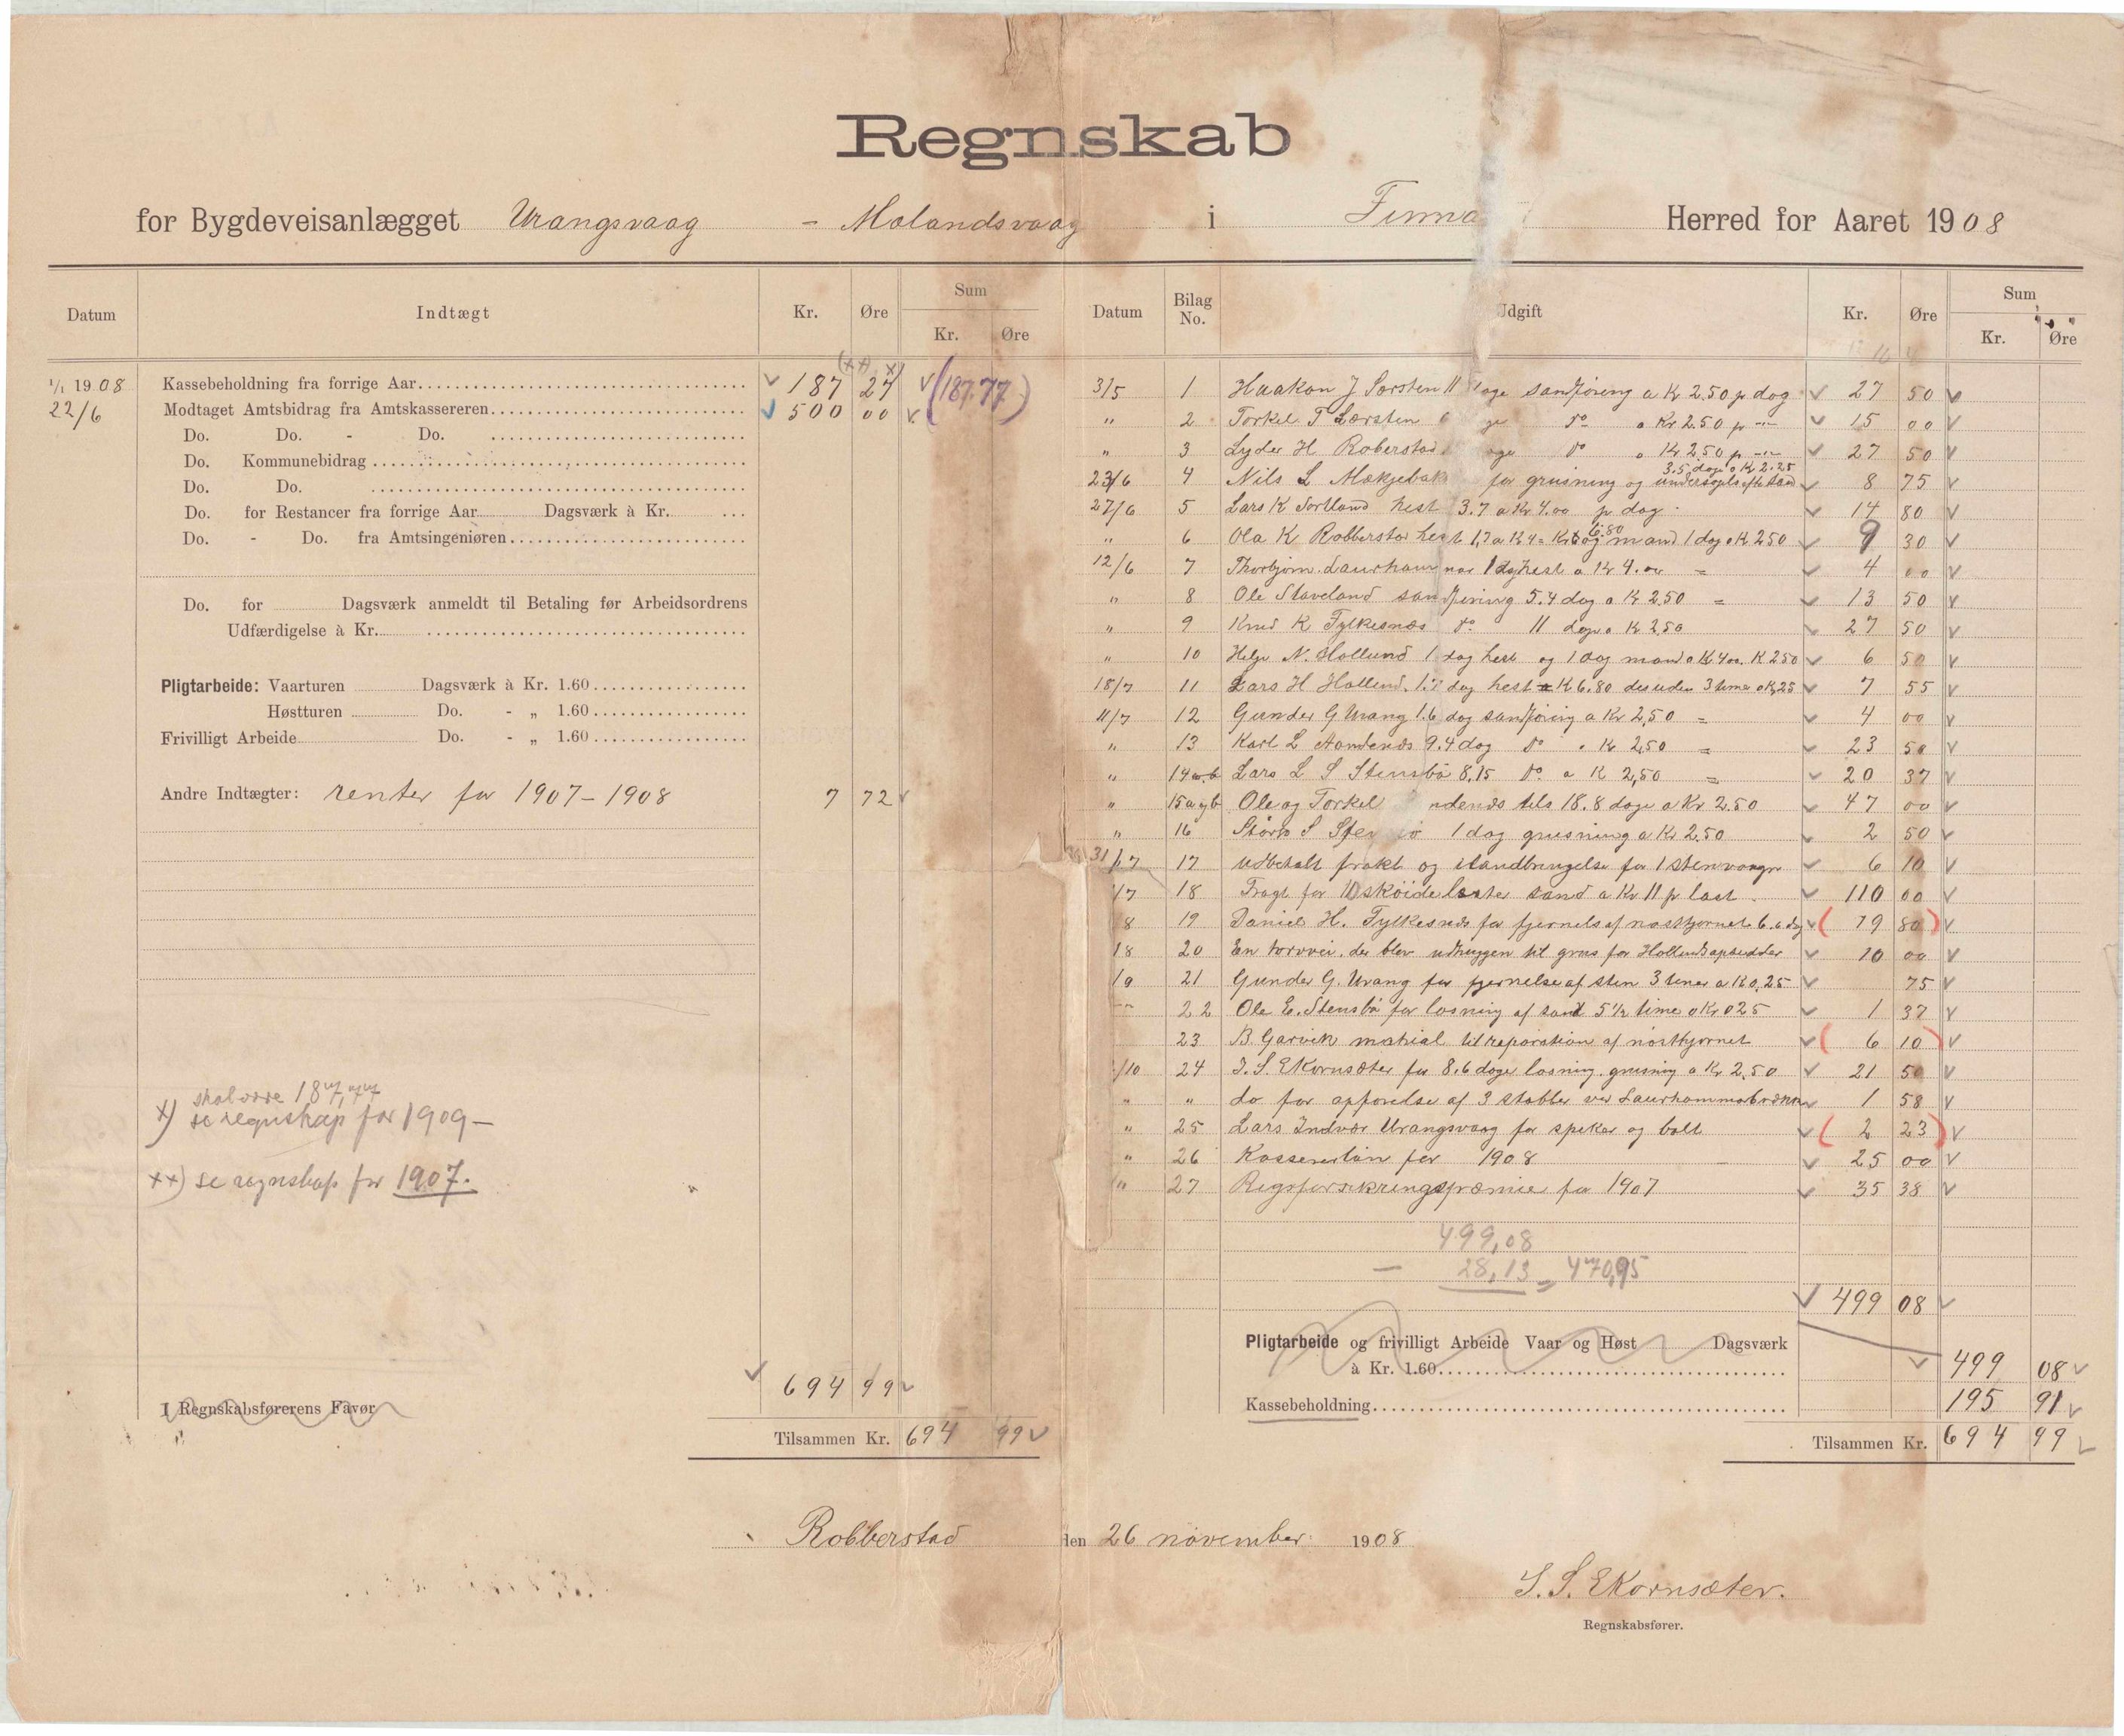 Regnskab
for Bygdeveisanlægget Urangsvaag - Molandsvaag i Finna Herred for Aaret 1908
Datum Indtægt Kr. Øre Sum Kr. Øre
(xx) x)
1/1 1908 Kassebeholdning fra forrige Aar 187 27 (187.77)
22/6 Modtaget Amtsbidrag fra Amtskassereren 500 00
Do. Do. - Do.
Do. Kommunebidrag
Do. Do.
Do. for Restancer fra forrige Aar Dagsværk à Kr.
Do. - Do. fra Amtsingeniøren
Do. for Dagsværk anmeldt til Betaling før Arbeidsordrens
Udfærdigelse à Kr.
Pligtarbeide: Vaarturen Dagsværk à Kr. 1.60
Høstturen Do. - „ 1.60
Frivilligt Arbeide Do. - „ 1.60
Andre Indtægter: renter for 1907-1908 7 72
skal være 187,77
x) se regnskap for 1909 –
xx) se regnskap for 1907.
694 99
I Regnskabsførerens Favør
Tilsammen Kr. 694 99
Datum Bilag No. Udgift Kr. Øre Sum Kr. Øre
3/5 1 Haakon J Sørsten 11 dage sandkjøring a Kr 2.50 pr dag 27 50
" 2 Torkel T Lærsten do a Kr 2.50 pr -"- 15 00
" 3 Lyder H Roberstad do a Kr 2.50 pr -"- 27 50
3.5 dage a Kr 2.25
23/6 4 Nils L Mækjebak for grusning og undersøgelse efter sand 8 75
27/6 5 Lars K Sortland hest 3.7 a Kr 4.00 pr dag 14 80
" 6 Ola K Robberstad hest 1,7 a Kr 4 = Kr 6.80 og mand 1 dag a Kr 250 9 30
12/6 7 Thorbjørn Laurhammer 1 dag hest a Kr 4.00 = 4 00
" 8 Ole Staveland sandkjøring 5.4 dag a Kr 2.50 = 13 50
" 9 Knud K Fylkesnæs do 11 dage a Kr 2,50 27 50
" 10 Helge N. Hollund 1 dag hest og 1 dag mand a Kr 4 00. K 250 6 50
18/7 11 Lars H Hollund. 1.7 dag hest K 6.80 desuden 3 time a K 25 7 55
11/7 12 Gunder G Urang 1.6 dag sandkjøring a Kr 2,50 = 4 00
" 13 Karl L 9.4 dag do a Kr 2,50 = 23 50
" 14 a-b Lars L S Stensbø 8,15 do a K 2,50 = 20 37
" 15 a og b Ole og Torkel tils 18.8 dage a Kr 2.50 47 00
" 16 S 1 dag grusning a Kr 2.50 2 50
31/7 17 udbetalt frakt og ilandbringelse for 1 stenvaagn 6 10
/7 18 Fragt for 10 skøidelaster sand a Kr 11 pr last 110 00
8 19 Daniel H. Fylkesnæs for fjernelse af nøsthjørnet 6.6 dag (19 80)
18 20 En torvvei, der blev udhuggen til grus for Hollunds opsidder 10 00
/9 21 Gunder G. Urang for fjernelse af sten 3 timer a K 0,25 75
22 Ole E. Stensbø for losning af sand 5 1/2 time a Kr 025 1 37
23 B Garvik matrial til reparation af nøsthjørnet (6 10)
/10 24 I. S. Ekornsæter for 8,6 dage losning. grusning a Kr 2,50 21 50
" " do for opførelse af 3 stabber ved 1 58
" 25 Lars Indvær Urangsvaag for spiker og bolt (2 23)
" 26 Kassererløn for 1908 25 00
" 27 Rigsforsikringspræmie for 1907 35 38
499,08
– 28,13 = 470,95
499 08
Pligtarbeide og frivilligt Arbeide Vaar og Høst Dagsværk
à Kr. 1.60 499 08
Kassebeholdning 195 91
Tilsammen Kr. 694 99
Robberstad den 26 november 1908
I. S. Ekornsæter.
Regnskabsfører.